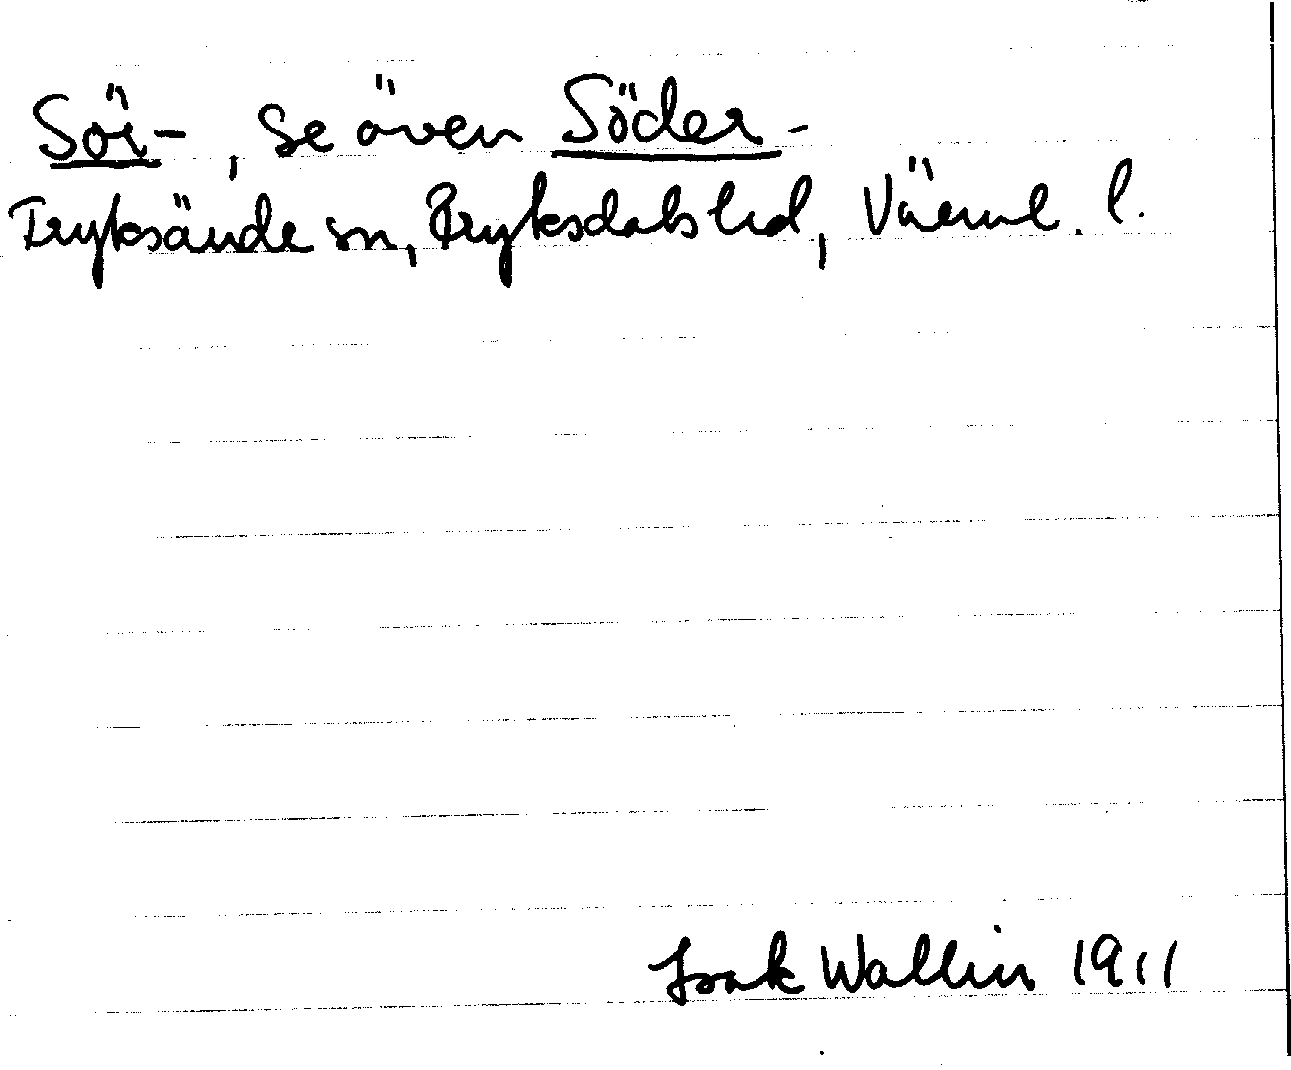 Sör-, se även Söder-
Fryksände sn, Fryksdals hd, Värml. l.
Isak Wallin 1911